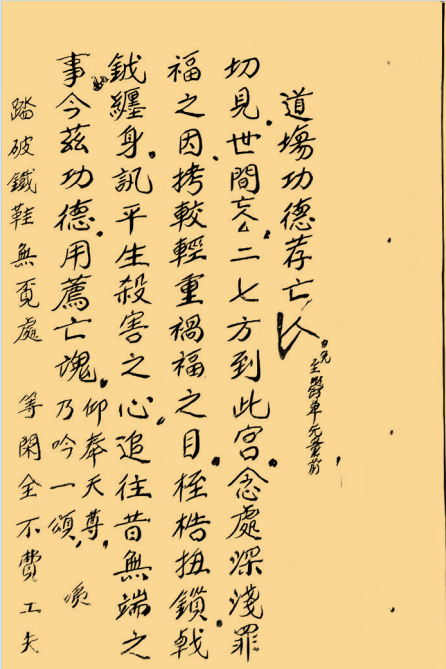 道場功德荐亡人
切見世間亡人二七方到此宮念處深淺罪
福之因拷較輕重禍福之目桎梏扭鎖戟
鉞纏身訊平生殺害之心追往昔無端之
事今茲功德用薦亡魂仰奉天尊乃吟一頌
踏破鐵鞋無覓處 等閑全不費工夫